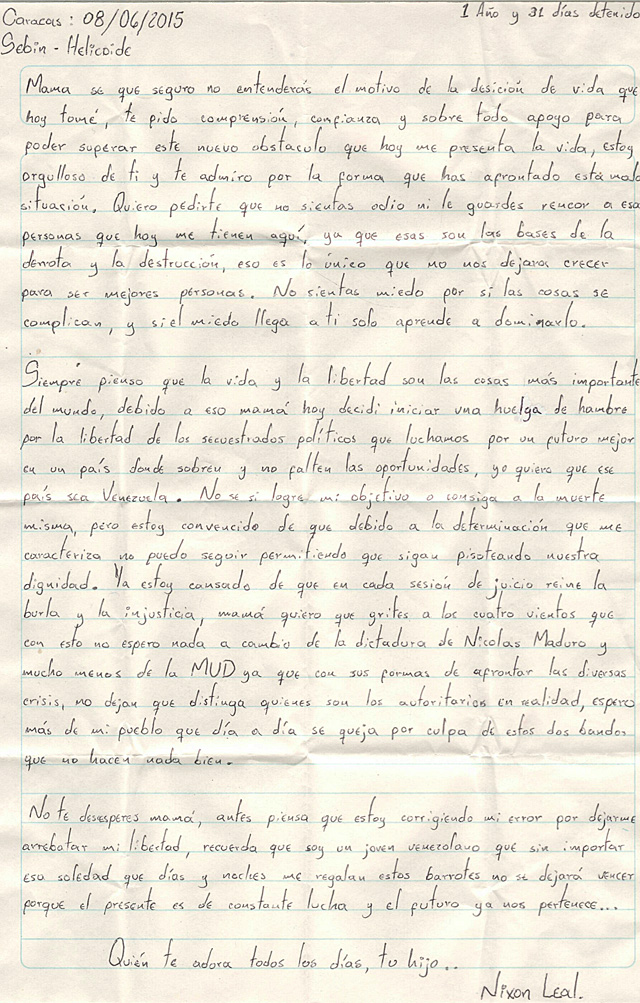 Caracas: 08/06/2015
1 Año y 31 días detenido
Sebin - Helicoide
Mama se que seguro no entenderás el motivo de la desición de vida que
hoy tomé, te pido comprensión, confianza y sobre todo apoyo para
poder superar este nuevo obstaculo que hoy me presenta la vida, estoy
orgulloso de ti y te admiro por la forma que has afrontado está mala
situación. Quiero pedirte que no sientas odio ni le guardes rencor a esas
personas que hoy me tienen aquí, ya que esas son las bases de la
derrota y la destrucción, eso es lo único que no nos dejara crecer
para ser mejores personas. No sientas miedo por si las cosas se
complican, y si el miedo llega a ti solo aprende a dominarlo.
Siempre pienso que la vida y la libertad son las cosas más importante
del mundo, debido a eso mamá hoy decidi iniciar una huelga de hambre
por la libertad de los secuestrados políticos que luchamos por un futuro mejor
en un país donde sobren y no falten las oportunidades, yo quiero que ese
país sea Venezuela. No se si logre mi objetivo o consiga a la muerte
misma, pero estoy convencido de que debido a la determinación que me
caracteriza no puedo seguir permitiendo que sigan pisoteando nuestra
dignidad. Ya estoy cansado de que en cada sesión de juicio reine la
burla y la injusticia, mamá quiero que grites a los cuatro vientos que
con esto no espero nada a cambio de la dictadura de Nicolas Maduro y
mucho menos de la MUD ya que con sus formas de afrontar las diversas
crisis, no dejan que distinga quienes son los autoritarios en realidad, espero
más de mi pueblo que día a día se queja por culpa de estos dos bandos
que no hacen nada bien.
No te desesperes mamá, antes piensa que estoy corrigiendo mi error por dejarme
arrebatar mi libertad, recuerda que soy un joven venezolano que sin importar
esa soledad que días y noches me regalan estos barrotes no se dejará vencer
porque el presente es de constante lucha y el futuro ya nos pertenece...
Quién te adora todos los días, tu hijo..
Nixon Leal.